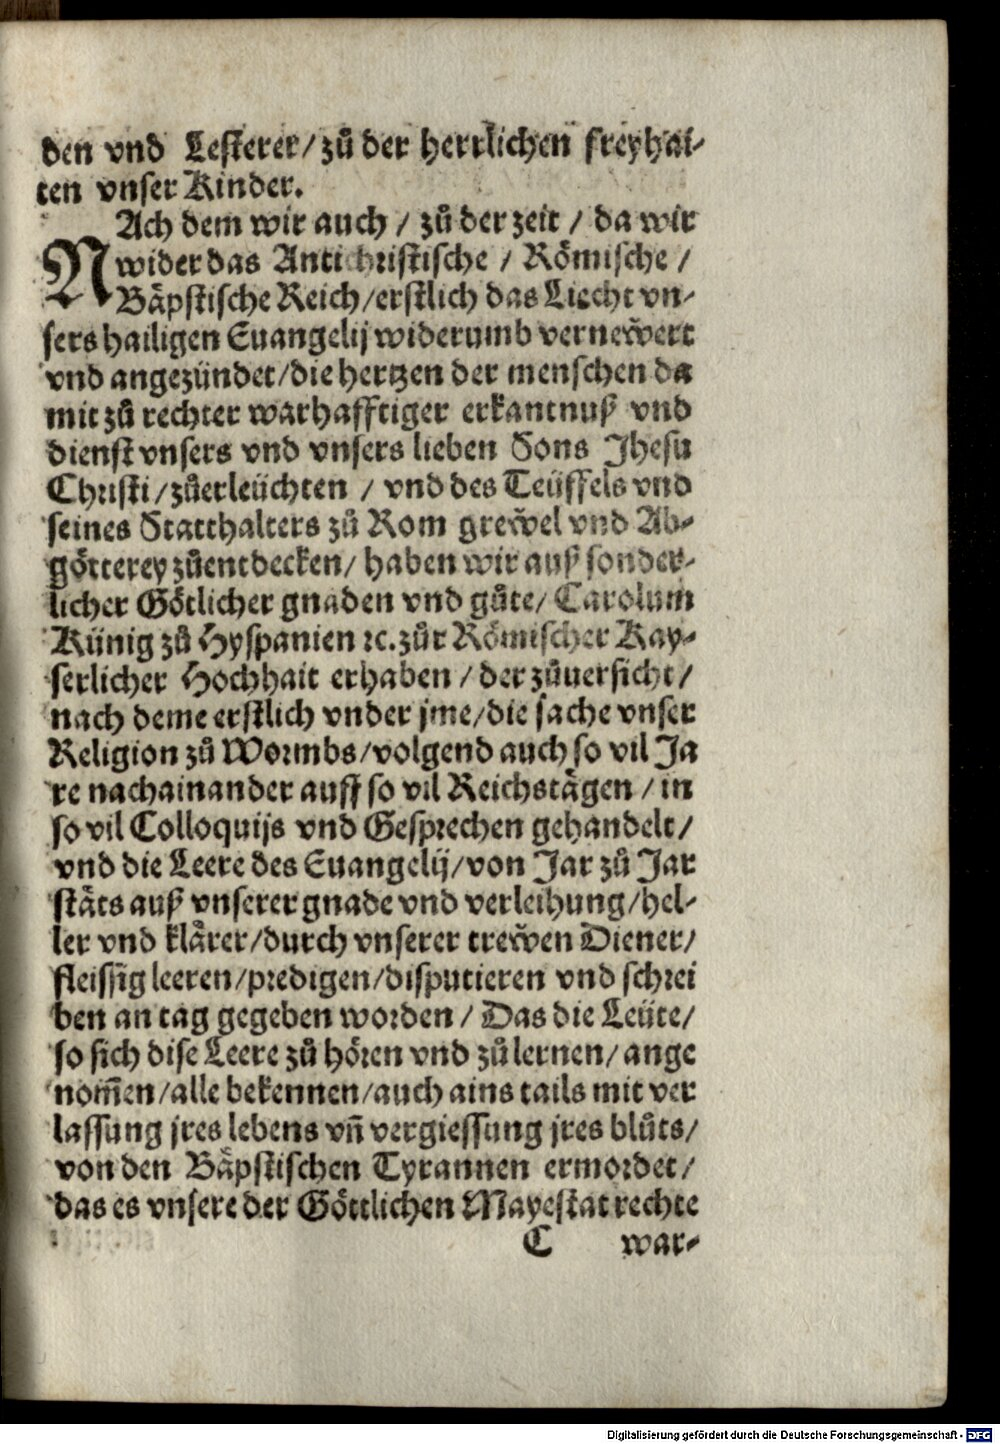 den vnd Lesterer/ zů der herrlichen freyhai-
ten vnser Kinder.
NAch dem wir auch / zů der zeit / da wir
wider das Antichristische / Römische /
Bäpstische Reich/erstlich das Liecht vn-
sers hailigen Euangelij widerumb vernew̃ert
vnd angezündet/die hertzen der menschen da
mit zů rechter warhafftiger erkantnuß vnd
dienst vnsers vnd vnsers lieben Sons Jhesu
Christi/zůerleüchten / vnd des Teüffels vnd
seines Statthalters zů Rom grew̃el vnd Ab-
götterey zůentdecken/ haben wir auß sonder-
licher Götlicher gnaden vnd gůte/ Carolum
Künig zů Hyspanien ꝛc. zůr Römischer Kay-
serlicher Hochhait erhaben / der zůuersicht/
nach deme erstlich vnder jme/die sache vnser
Religion zů Wormbs/volgend auch so vil Ja
re nachainander auff so vil Reichstägen / in
so vil Colloquijs vnd Gesprechen gehandelt/
vnd die Leere des Euangelij/von Jar zů Jar
stäts auß vnserer gnade vnd verleihung/hel-
ler vnd klärer/durch vnserer trew̃en Diener/
fleissig leeren/predigen/disputieren vnd schrei
ben an tag gegeben worden / Das die Leüte/
so sich dise Leere zů hören vnd zů lernen/ ange
nom̃en/alle bekennen/auch ains tails mit ver
lassung jres lebens vñ vergiessung jres blůts/
von den Bäpstischen Tyrannen ermordet/
das es vnsere der Göttlichen Mayestat rechte
C war-
Digitalisierung gefördert durch die Deutsche Forschungsgemeinschaft - DFG